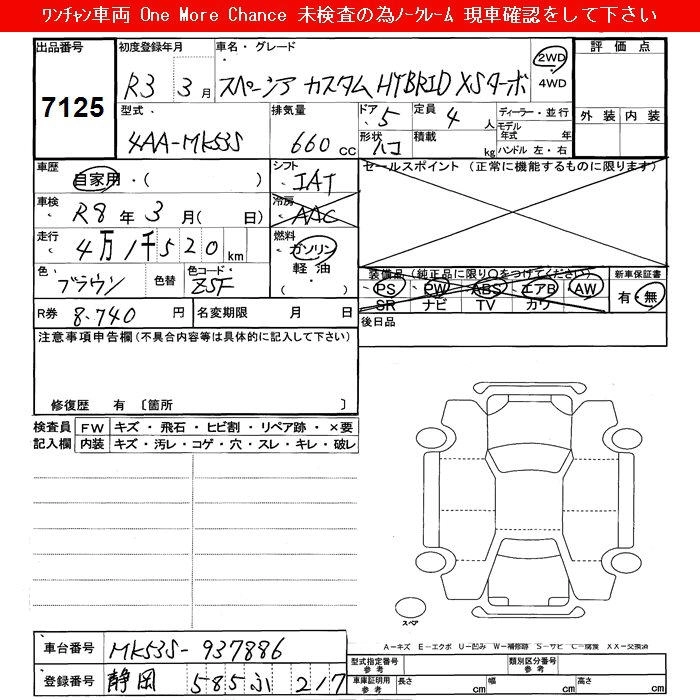 ワンチャン車両 One More Chance 未検査の為ノークレーム 現車確認をして下さい
出品番号 初度登録年月 車名・グレード 2WD 評価点
7125 R3 3月 スペーシア カスタム HYBRID XSターボ 4WD
型式 排気量 ドア 定員 ディーラー・並行 外装 内装
4AA-MK53S 660 CC 5 4人 モデル年式 年式
形状 ハコ 積載 kg ハンドル 左・右
車歴 シフト セールスポイント (正常に機能するものに限ります)
自家用・( ) IAT
車検 R8年3月( 日) 冷房 AAC
走行 4万1千520km 燃料 ガソリン
軽油
色 ブラウン 色替 色コード ZSF
装備品(純正品に限り○をつけてください) 新車保証書
PS PW ABS エアB AW 有・無
SR ナビ TV カワ
R券 8.740円 名変期限 月 日 後日品
注意事項申告欄(不具合内容等は具体的に記入して下さい)
修復歴 有 〔箇所 〕
検査員 FW キズ・飛石・ヒビ割・リペア跡・×要
記入欄 内装 キズ・汚レ・コゲ・穴・スレ・キレ・破レ
スペア
A-キズ E-エクボ U-凹み W-補修跡 S-サビ C-腐食 XX-交換済
車台番号 MK53S-937886
型式指定番号 参考 類別区分番号 参考
登録番号 静岡 585 ふ 217
車庫証明用 参考 長さ cm 幅 cm 高さ cm